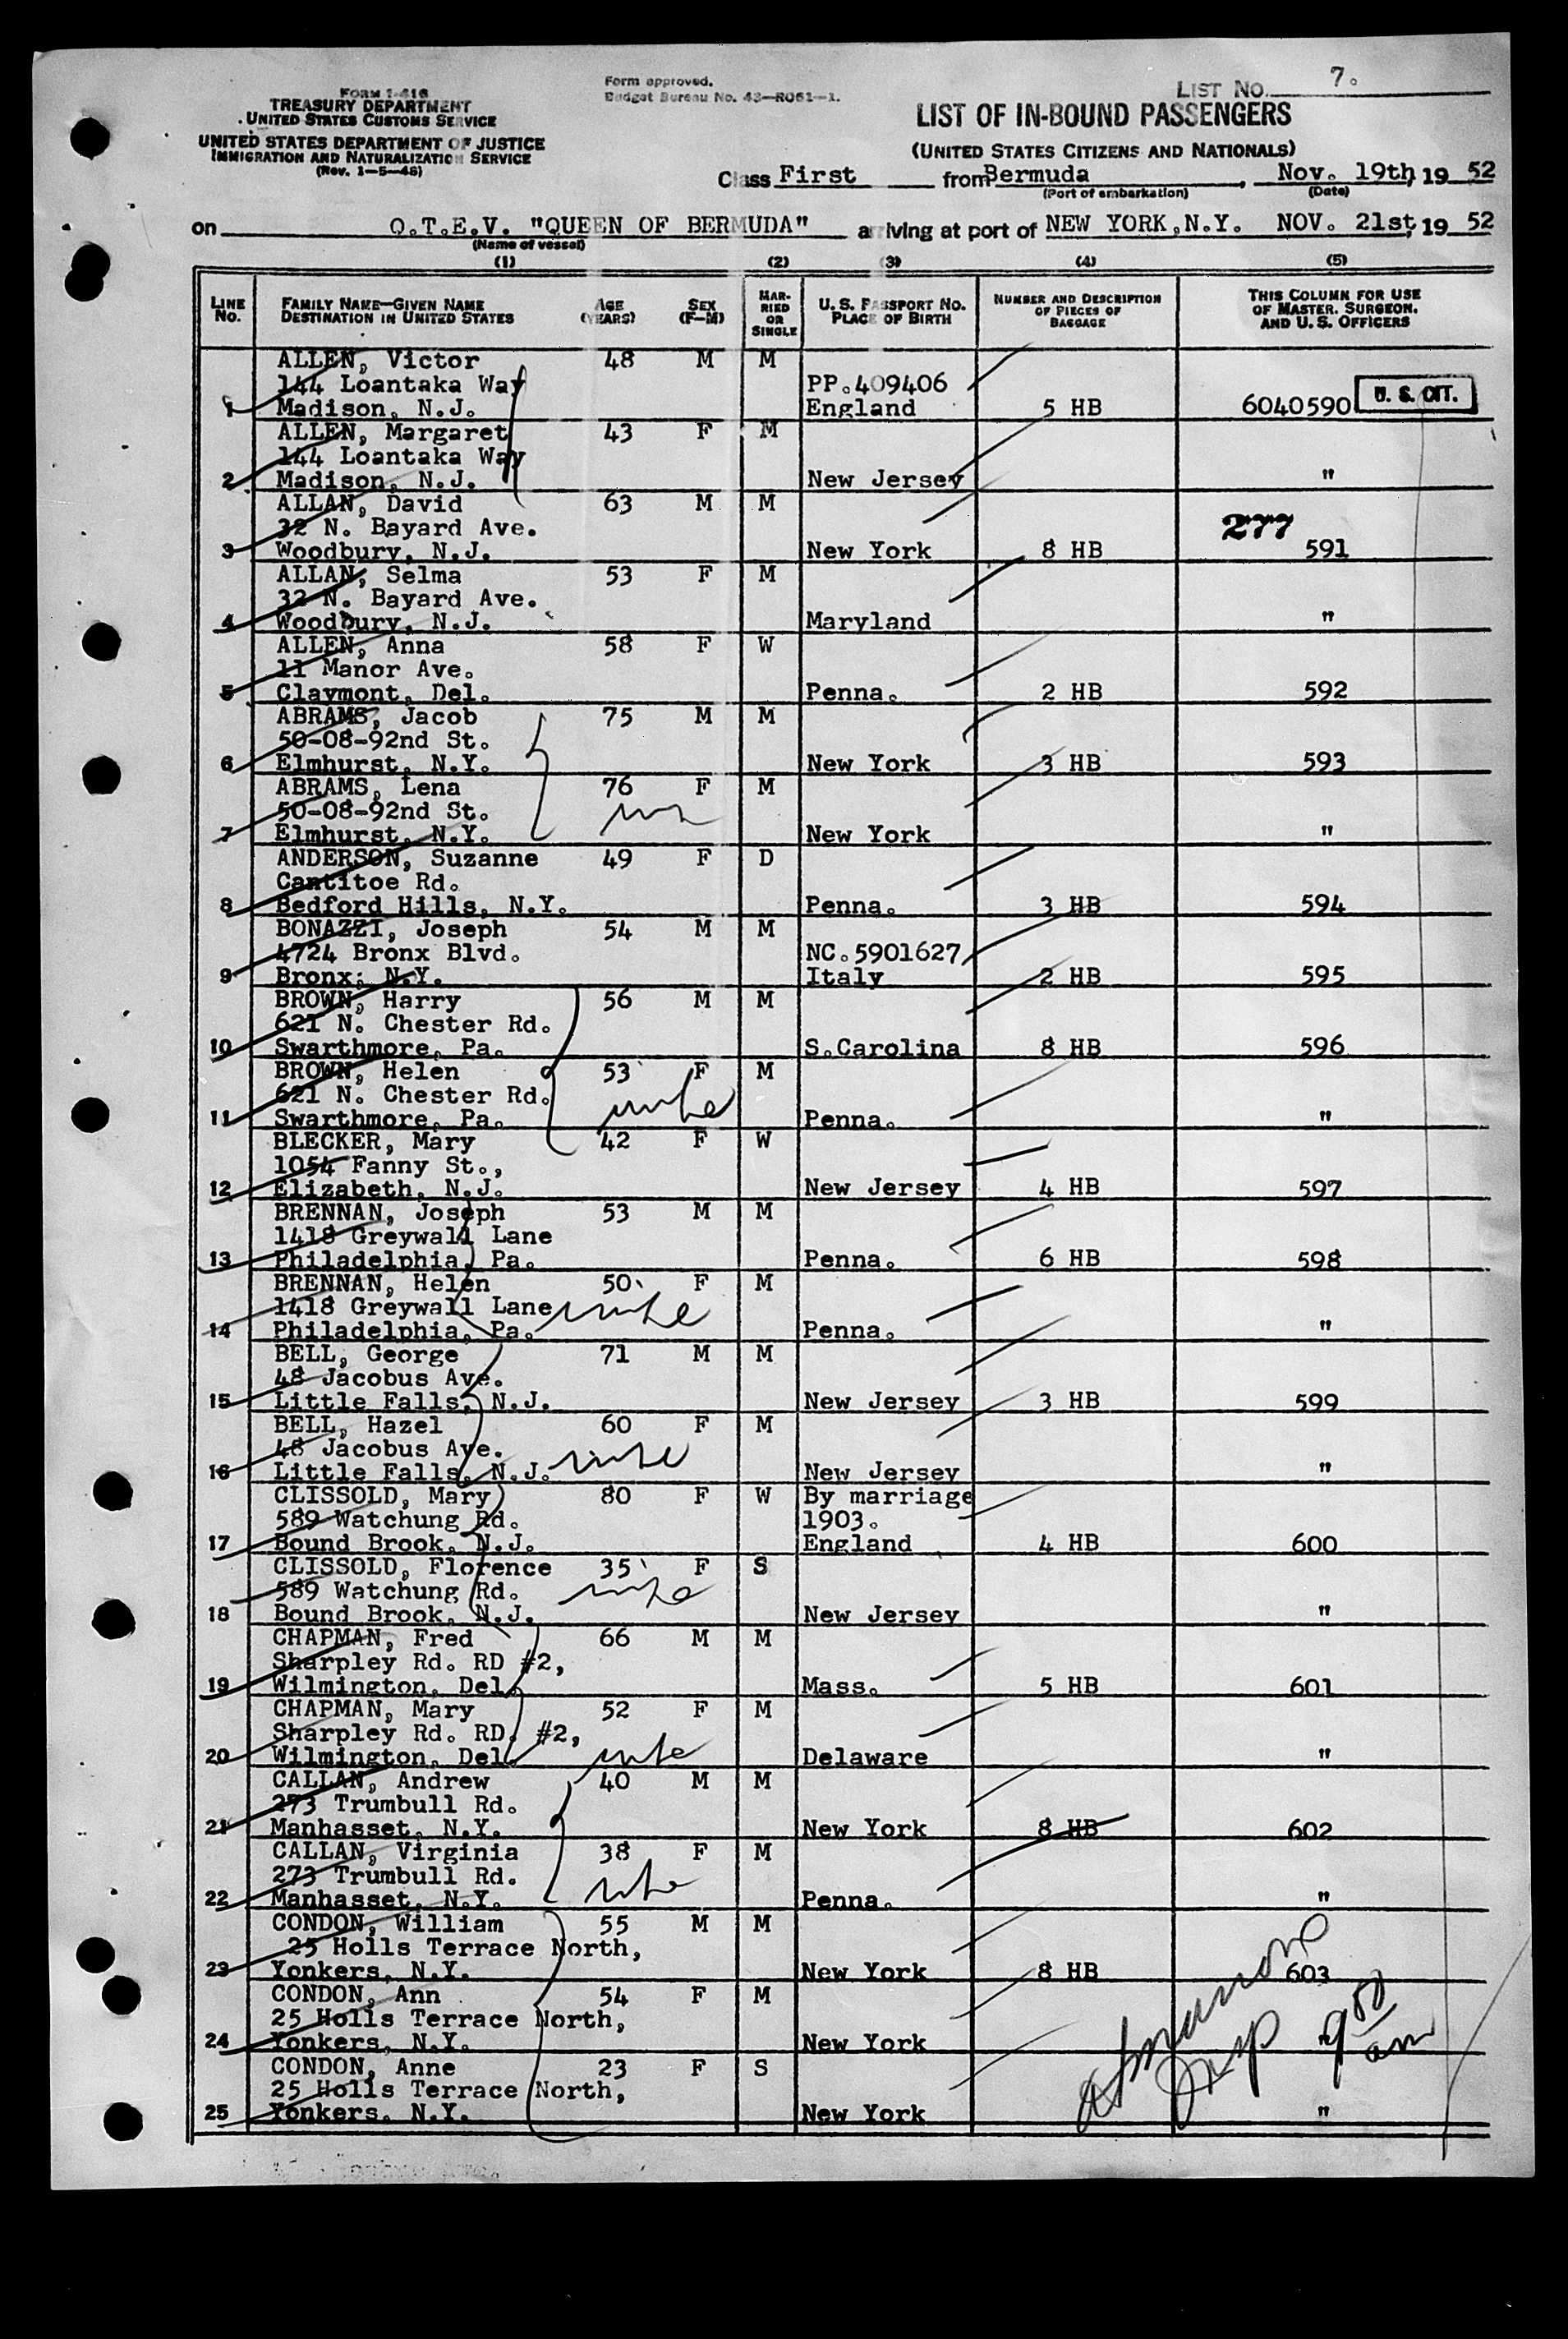 LIST NO. 7.
Form approved.
Budget Bureau No. 43—R061—1.
FORM I-416
TREASURY DEPARTMENT
UNITED STATES CUSTOMS SERVICE
UNITED STATES DEPARTMENT OF JUSTICE
IMMIGRATION AND NATURALIZATION SERVICE
(Rev. 1—5—48)
LIST OF IN-BOUND PASSENGERS
(UNITED STATES CITIZENS AND NATIONALS)
Class First from Bermuda, Nov. 19th, 19 52
(Port of embarkation) (Date)
on Q.T.E.V. "QUEEN OF BERMUDA" arriving at port of NEW YORK, N.Y. NOV. 21st, 19 52
(Name of vessel)
(1) (2) (3) (4) (5)
LINE No. FAMILY NAME—GIVEN NAME DESTINATION IN UNITED STATES AGE (YEARS) SEX (F—M) MARRIED OR SINGLE U. S. PASSPORT NO. PLACE OF BIRTH NUMBER AND DESCRIPTION OF PIECES OF BAGGAGE THIS COLUMN FOR USE OF MASTER, SURGEON, AND U. S. OFFICERS
ALLEN, Victor 48 M M
144 Loantaka Way PP.409406
1 Madison, N.J. England 5 HB 6040590 U. S. CIT.
ALLEN, Margaret 43 F M
144 Loantaka Way
2 Madison, N.J. New Jersey "
ALLAN, David 63 M M
32 N. Bayard Ave. 277
3 Woodbury, N.J. New York 8 HB 591
ALLAN, Selma 53 F M
32 N. Bayard Ave.
4 Woodbury, N.J. Maryland "
ALLEN, Anna 58 F W
11 Manor Ave.
5 Claymont, Del. Penna. 2 HB 592
ABRAMS, Jacob 75 M M
50-08-92nd St.
6 Elmhurst, N.Y. New York 3 HB 593
ABRAMS, Lena 76 F M
50-08-92nd St.
7 Elmhurst, N.Y. New York "
ANDERSON, Suzanne 49 F D
Cantitoe Rd.
8 Bedford Hills, N.Y. Penna. 3 HB 594
BONAZZI, Joseph 54 M M
4724 Bronx Blvd. NC.5901627
9 Bronx, N.Y. Italy 2 HB 595
BROWN, Harry 56 M M
621 N. Chester Rd.
10 Swarthmore, Pa. S.Carolina 8 HB 596
BROWN, Helen 53 F M
621 N. Chester Rd.
11 Swarthmore, Pa. Penna. "
BLECKER, Mary 42 F W
1054 Fanny St.,
12 Elizabeth, N.J. New Jersey 4 HB 597
BRENNAN, Joseph 53 M M
1418 Greywall Lane
13 Philadelphia, Pa. Penna. 6 HB 598
BRENNAN, Helen 50 F M
1418 Greywall Lane
14 Philadelphia, Pa. Penna. "
BELL, George 71 M M
48 Jacobus Ave.
15 Little Falls, N.J. New Jersey 3 HB 599
BELL, Hazel 60 F M
48 Jacobus Ave.
16 Little Falls, N.J. New Jersey "
CLISSOLD, Mary 80 F W By marriage
589 Watchung Rd. 1903.
17 Bound Brook, N.J. England 4 HB 600
CLISSOLD, Florence 35 F S
589 Watchung Rd.
18 Bound Brook, N.J. New Jersey "
CHAPMAN, Fred 66 M M
Sharpley Rd. RD #2,
19 Wilmington, Del. Mass. 5 HB 601
CHAPMAN, Mary 52 F M
Sharpley Rd. RD. #2,
20 Wilmington, Del. Delaware "
CALLAN, Andrew 40 M M
273 Trumbull Rd.
21 Manhasset, N.Y. New York 8 HB 602
CALLAN, Virginia 38 F M
273 Trumbull Rd.
22 Manhasset, N.Y. Penna. "
CONDON, William 55 M M
25 Holls Terrace North,
23 Yonkers, N.Y. New York 8 HB 603
CONDON, Ann 54 F M
25 Holls Terrace North,
24 Yonkers, N.Y. New York "
CONDON, Anne 23 F S
25 Holls Terrace North,
25 Yonkers, N.Y. New York "